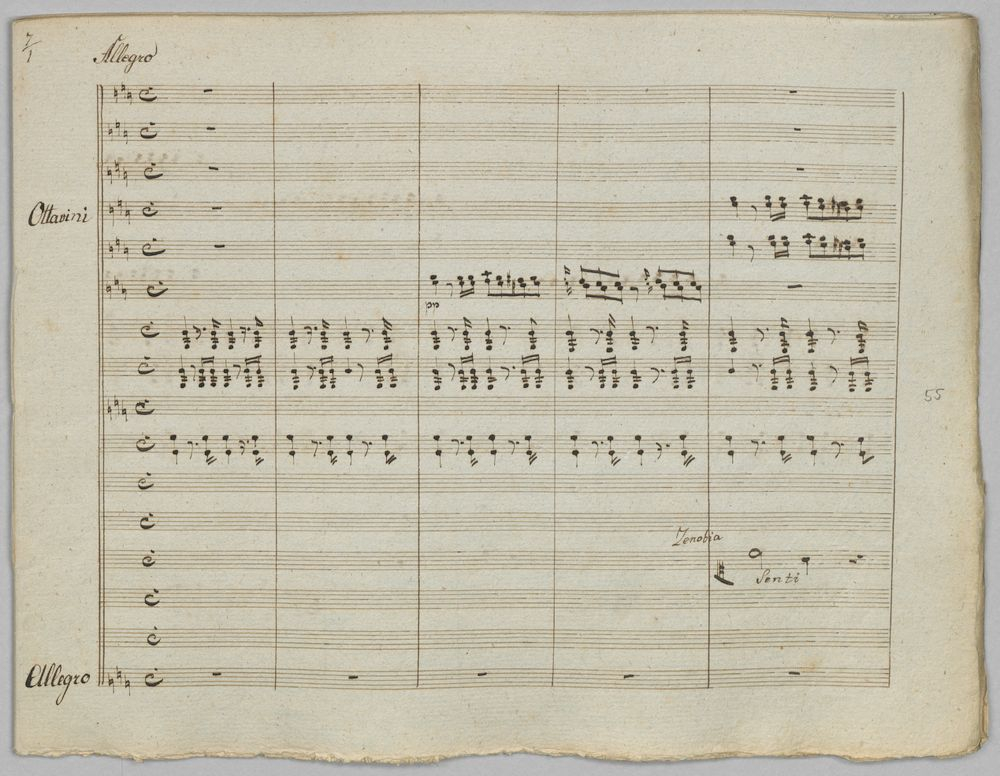 7/1
Allegro
Ottavini
pp
55
Zenobia
Senti
Allegro